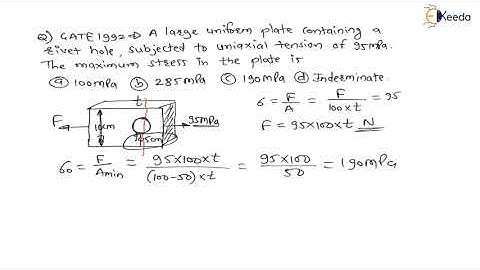 Ekeeda
Q) GATE 1992 → A large uniform plate containing a
rivet hole, subjected to uniaxial tension of 95MPa.
The maximum stress in the plate is
(a) 100MPa (b) 285MPa (c) 190MPa (d) Indeterminate.
t
F
10cm
5cm
95MPa
6 = F/A = F/(100×t) = 95
F = 95×100×t N
60 = F/Amin = 95×100×t/((100-50)×t) = 95×100/50 = 190MPa